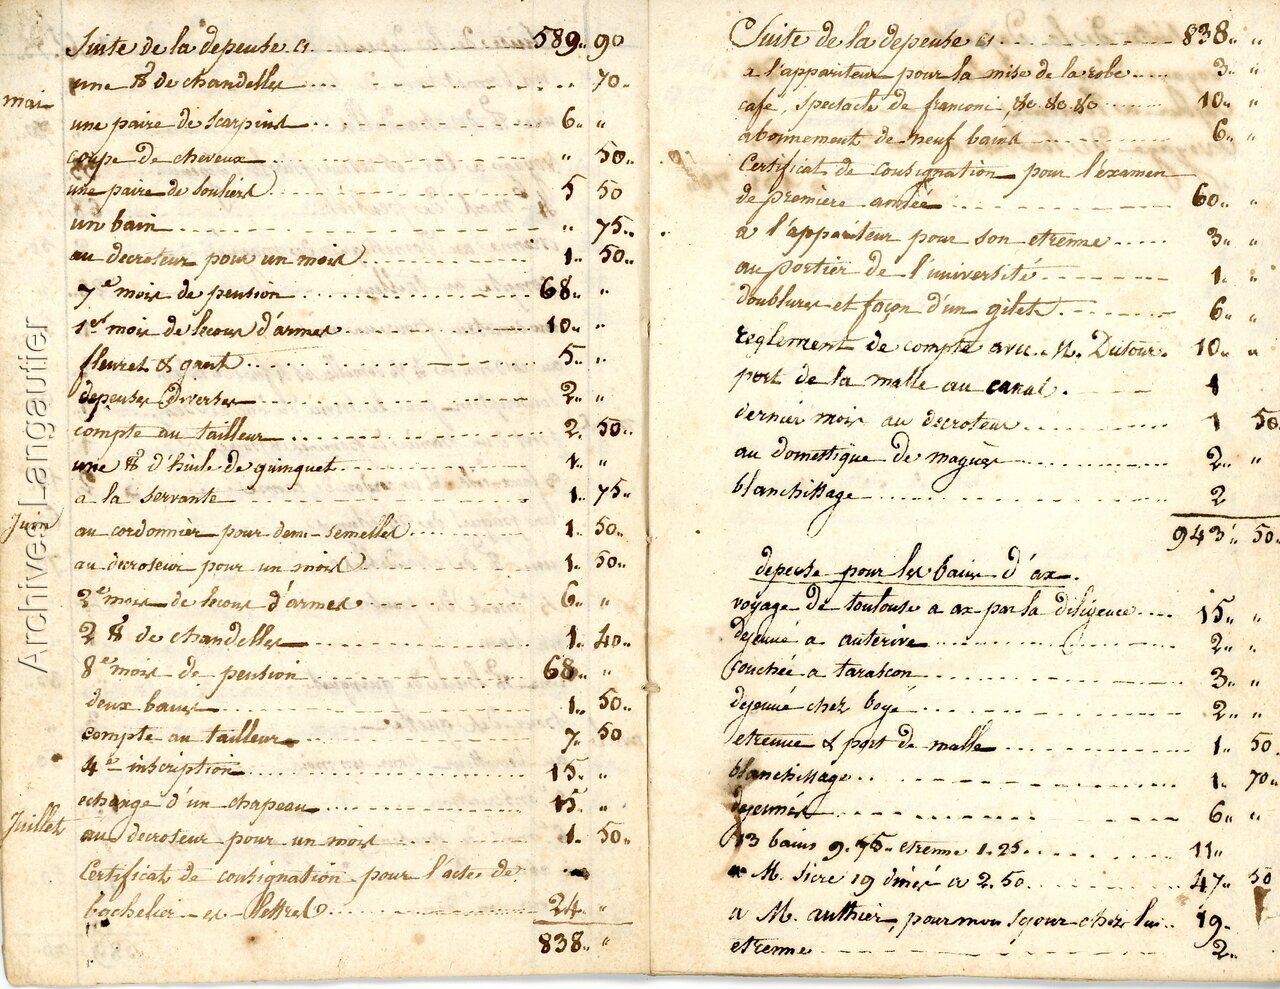 Suite de la depense cy. 589.. 90
une ℔ de chandelles 70..
mai
une paire de scarpins 6.. "
coupe de cheveux " 50..
une paire de souliers 5 50
un bain " 75..
au decroteur pour un mois 1.. 50..
7e mois de pension 68.. "
1er mois de lecons d'armes 10.. "
fleuret & gant 5.. "
depenses diverses 2.. "
compte au tailleur 2. 50..
une ℔ d'huile de quinquet 1.. "
a la servante 1.. 75..
Juin
au cordonnier pour demi-semelles 1.. 50..
au decroteur pour un mois 1. 50..
2e mois de lecons d'armes 6.. "
2 ℔ de chandelles 1.. 40..
8e mois de pension 68.. "
deux bains 1.. 50..
compte au tailleur 7. 50
4e inscription 15.. "
echange d'un chapeau 15.. "
Juillet
au decroteur pour un mois 1. 50..
Certificat de consignation pour l'acte de
bachelier-es-lettres 24.. "
838.. "
Archives Langautier
Suite de la depense cy 838.. "
a l'appariteur pour la mise de la robe 3.. "
café, spectacle de franconi, &c &c &c 10.. "
abonnement de neuf bains 6.. "
Certificat de consignation pour l'éxamen
de premiere année 60.. "
a l'appariteur pour son etrenne 3.. "
au portier de l'université 1. "
doublures et façon d'un gilet 6.. "
reglement de compte avec M. Dutour. 10.. "
port de la malle au canal. 1
dernier mois au decroteur 1 50.
au domestique de magnes 2.. "
blanchissage 2
943.. 50..
depense pour les bains d'ax.
voyage de toulouse a ax par la diligence 15.. "
dejeuné a auterive 2.. "
couchée a tarascon 3.. "
dejeuné chez boyé 2.. "
etrenne & port de malle 1.. 50.
blanchissage 1. 70..
dejeunés 6.. "
13 bains 9.75 etrenne 1.25 11..
a M. Sicre 19 dinés a 2.50 47.. 50
a M. authier, pour mon sejour chez lui 19.
etrenne 2..